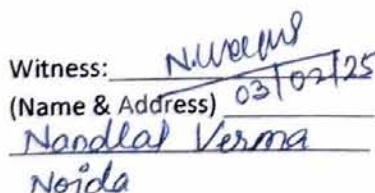 Witness:
(Name & Address) 03/02/25
Nandlal Verma
Noida